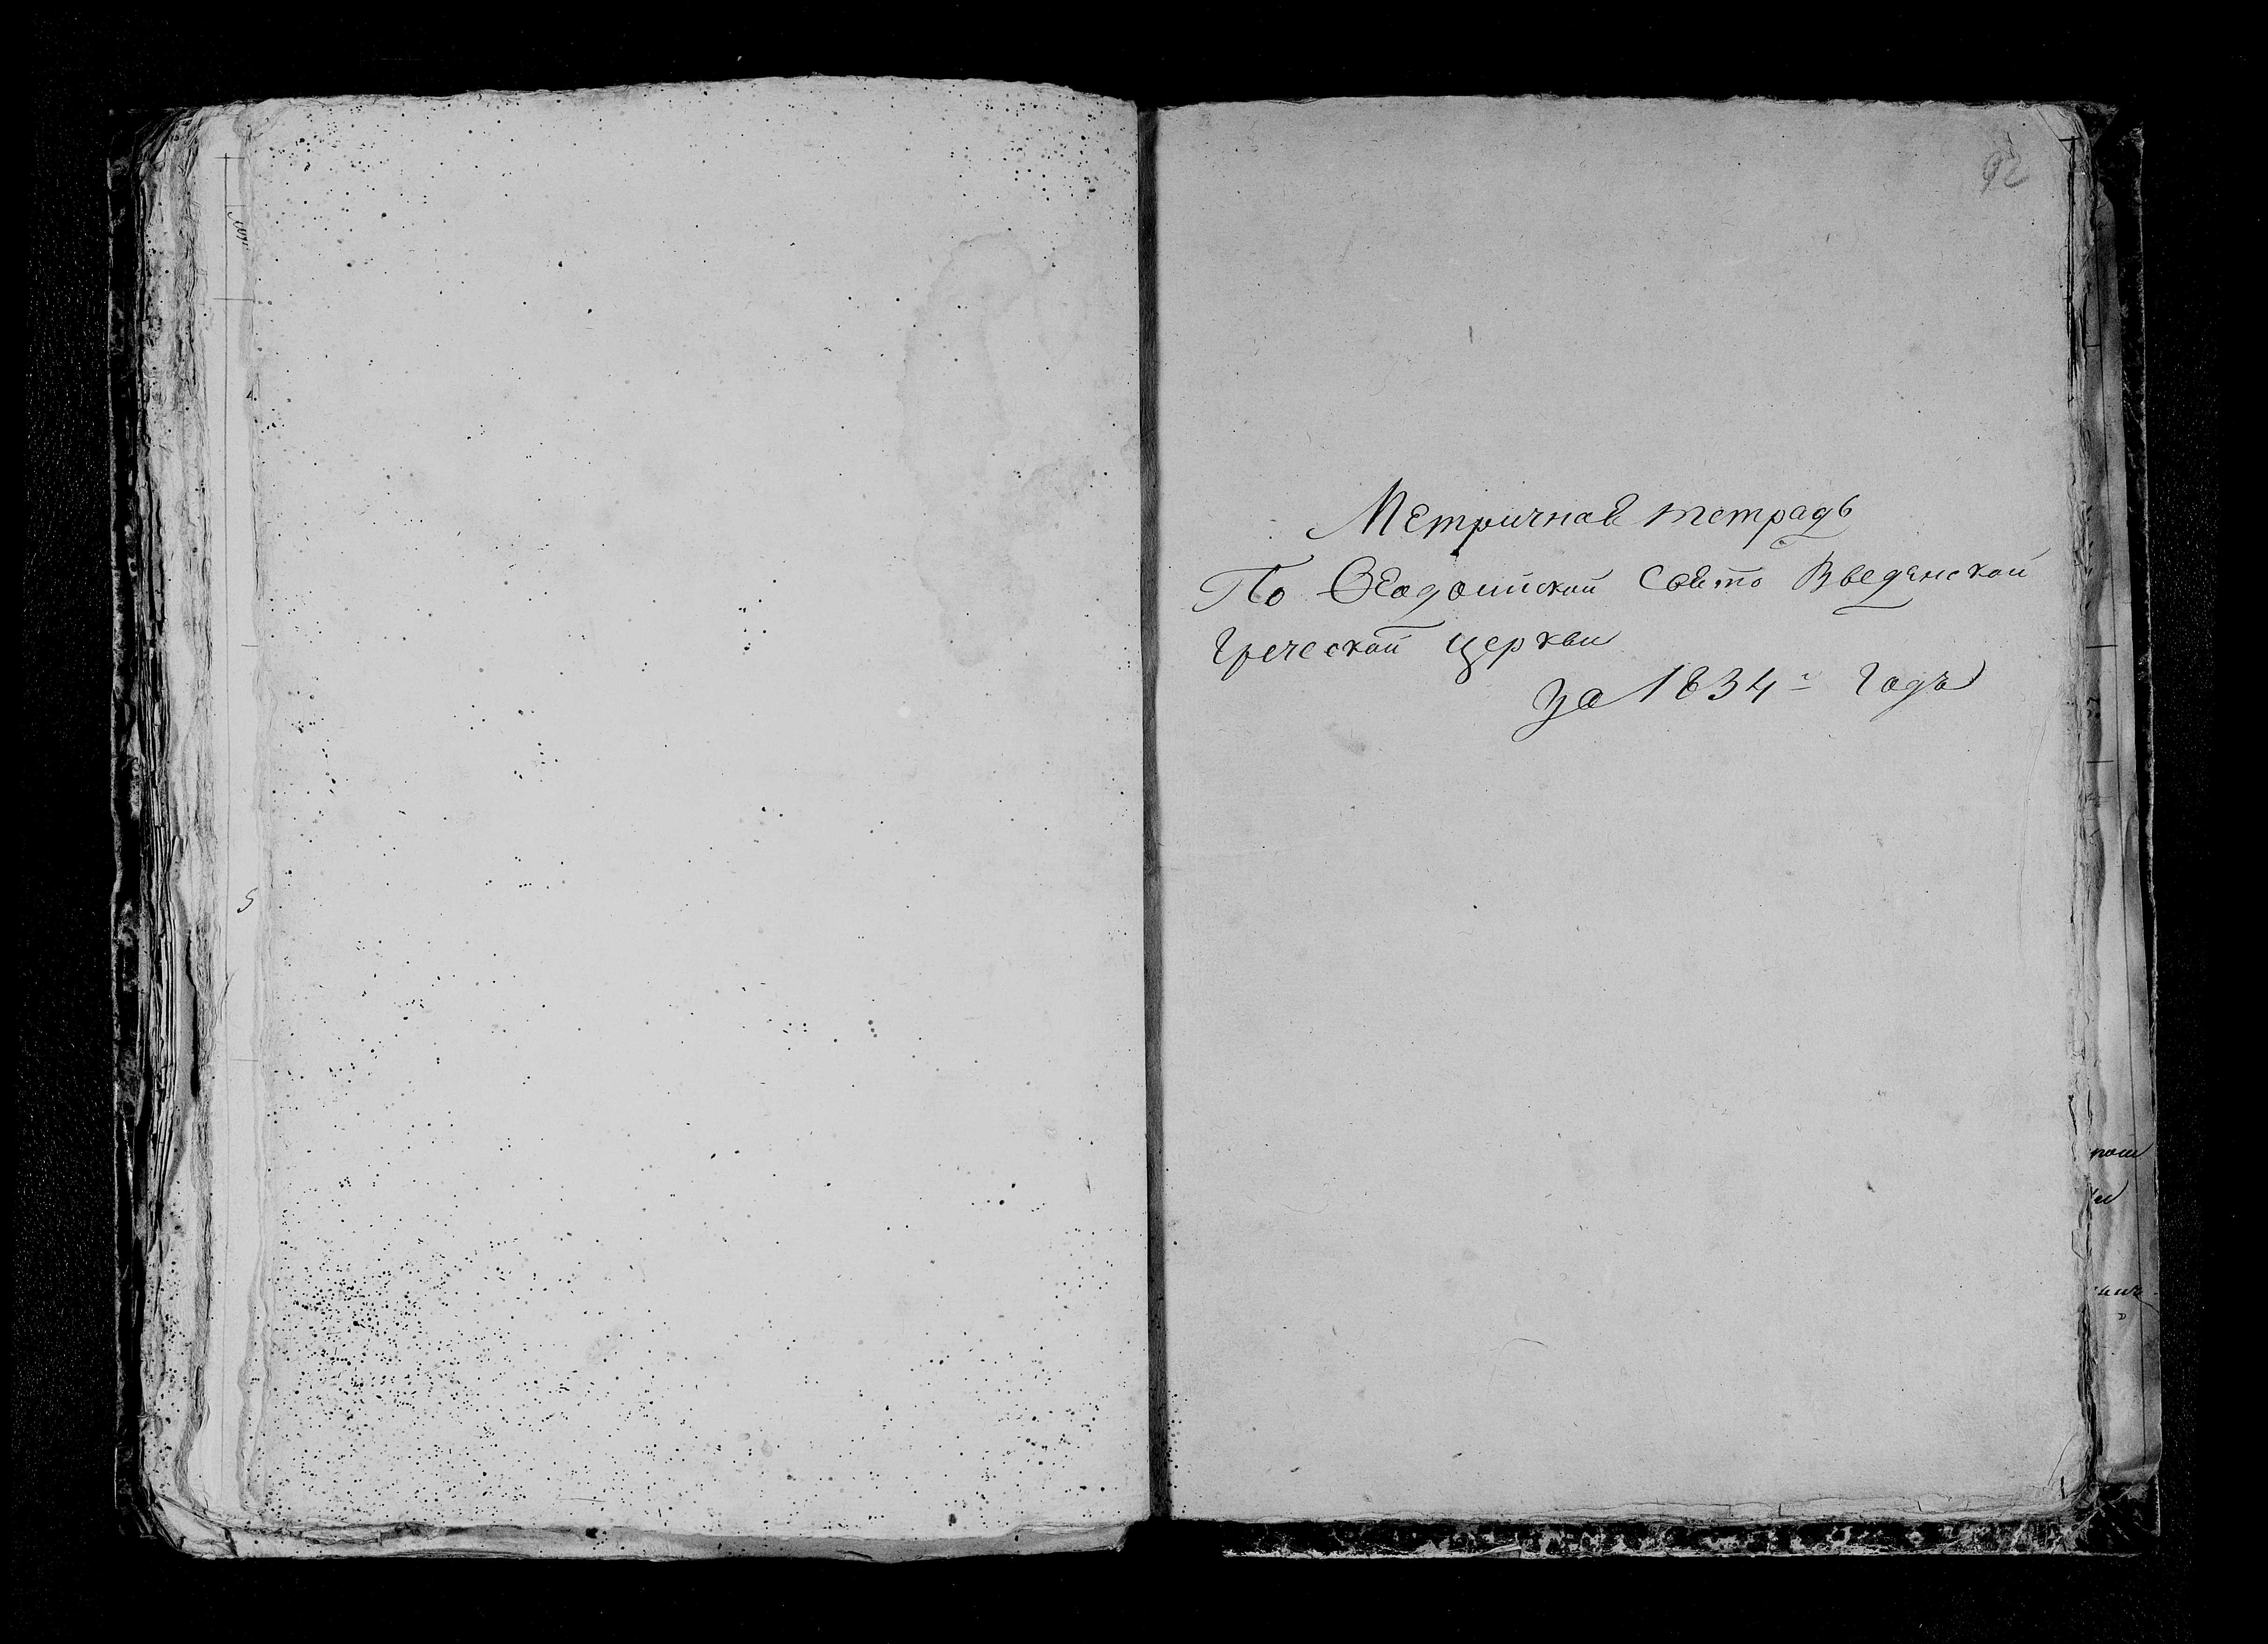 92
Метричная тетрадь
По Ѳеодосійской Свято Введенской
Греческой церкви
за 1834й Годъ